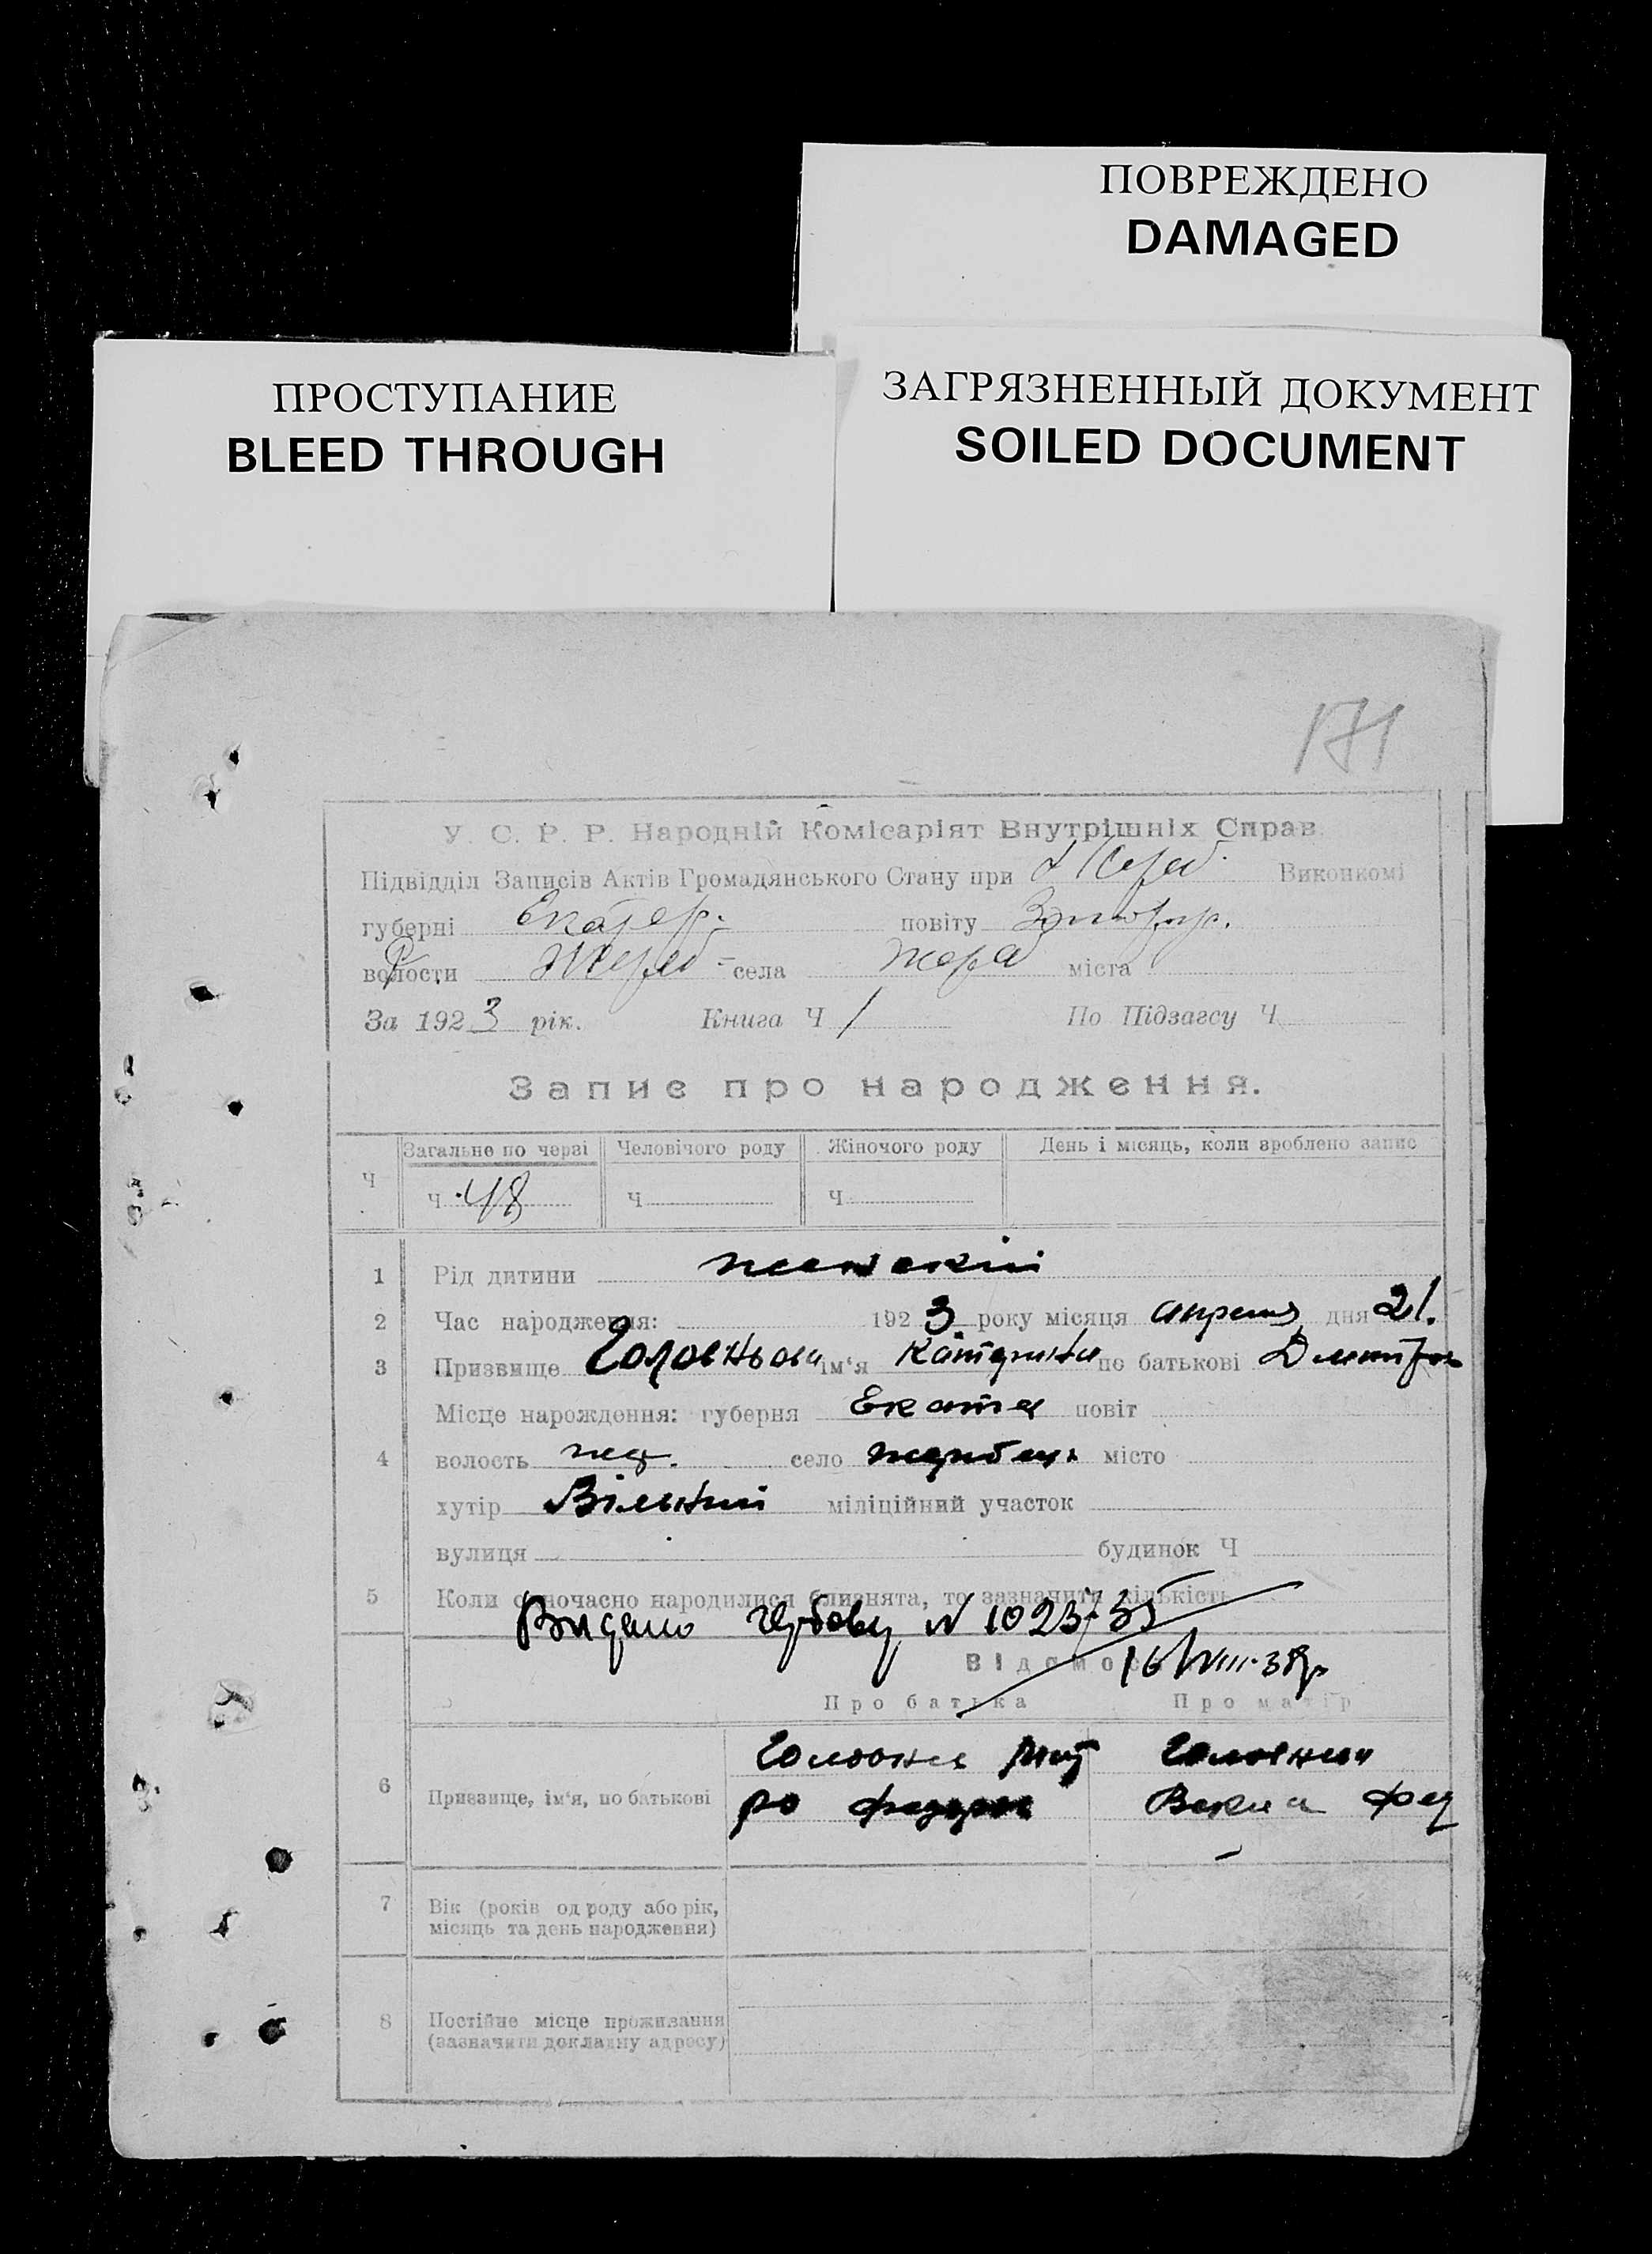 ПОВРЕЖДЕНО
DAMAGED
ПРОСТУПАНИЕ
BLEED THROUGH
ЗАГРЯЗНЕННЫЙ ДОКУМЕНТ
SOILED DOCUMENT
171
У. С. Р. Р. Народній Комісаріят Внутрішніх Справ
Підвідділ Записів Актів Громадянського Стану при Виконкомі
губерні Екатер. повіту
волости Жереб = села Жереб міста
За 1923 рік. Книга Ч 1 По Підзагсу Ч
Запис про народження.
Ч Загальне по черзі Человічого роду Жіночого роду День і місяць, коли зроблено запис
Ч 48 Ч Ч
1 Рід дитини женский
2 Час народження: 1923 року місяця апреля дня 21.
3 Призвище Головньова ім'я Катерина по батькові
Місце нарождення: губерня Екате повіт
4 волость жер. село Жеребець місто
хутір Вільний міліційний участок
вулиця будинок Ч
5 Коли одночасно народилися близнята, то зазначити кількість
Видано N 1023/35
16/VIII-38р
Відомос
Про батька Про матір
6 Призвище, ім'я, по батькові
Головня Дмит Головня
ро Федоров Фед
7 Вік (років од роду або рік,
місяць та день народження)
8 Постійне місце проживання
(зазначити докладну адресу)